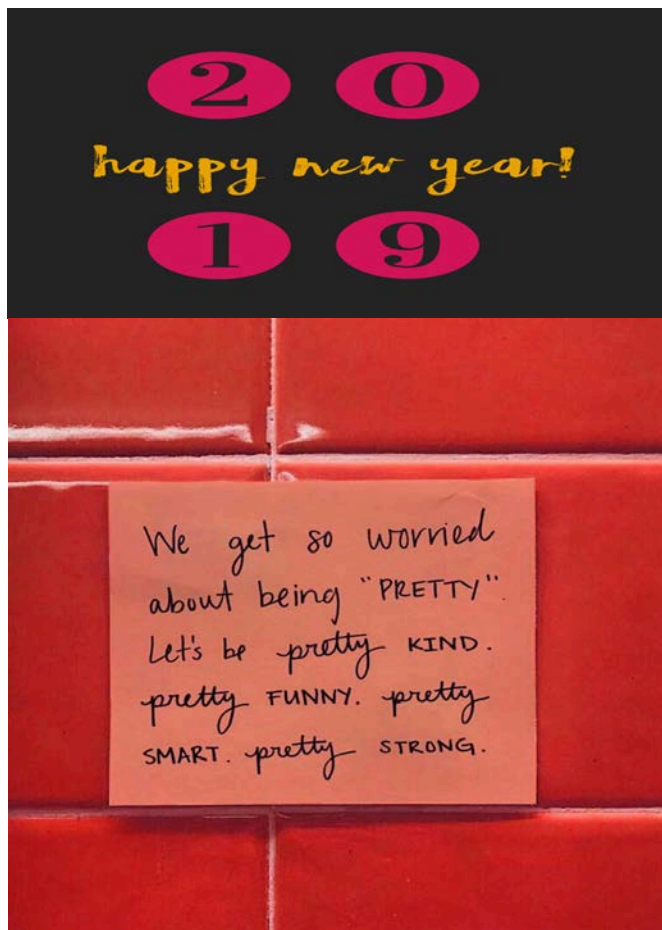 2 0
happy new year!
1 9
We get so worried
about being "PRETTY".
Let's be pretty KIND.
pretty FUNNY. pretty
SMART. pretty STRONG.